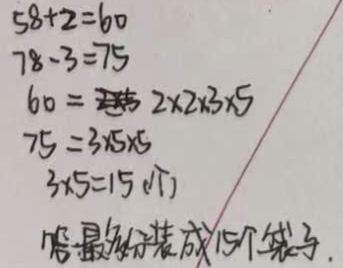 58+2=60
78-3=75
60=2×2×3×5
75=3×5×5
3×5=15(个)
答:最多分装成15个袋子.